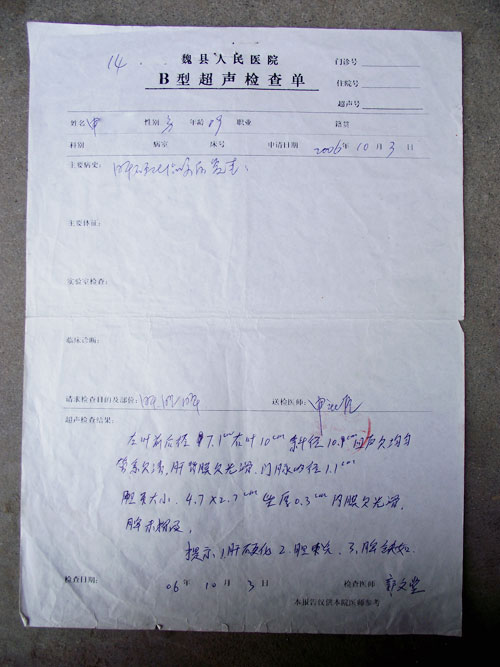 14
魏县人民医院
门诊号
B型超声检查单
住院号
超声号
姓名 性别 年龄 职业 籍贯
科别 病室 床号 申请日期 2006年10月3日
主要病史:
主要体征:
实验室检查:
临床诊断:
请求检查目的及部位: 送检医师:
超声检查结果:
左叶前后径 7.1cm 右叶10cm 斜径10.9cm 回声欠均匀
管系欠清,肝背膜欠光滑,门脉内径1.1cm
胆囊大小 4.7×2.7cm 壁厚0.3cm 内膜欠光滑,
脾未探及,
提示 1.肝硬化 2.胆囊炎 3.脾缺如.
检查日期: 06年10月3日 检查医师
本报告仅供本院医师参考